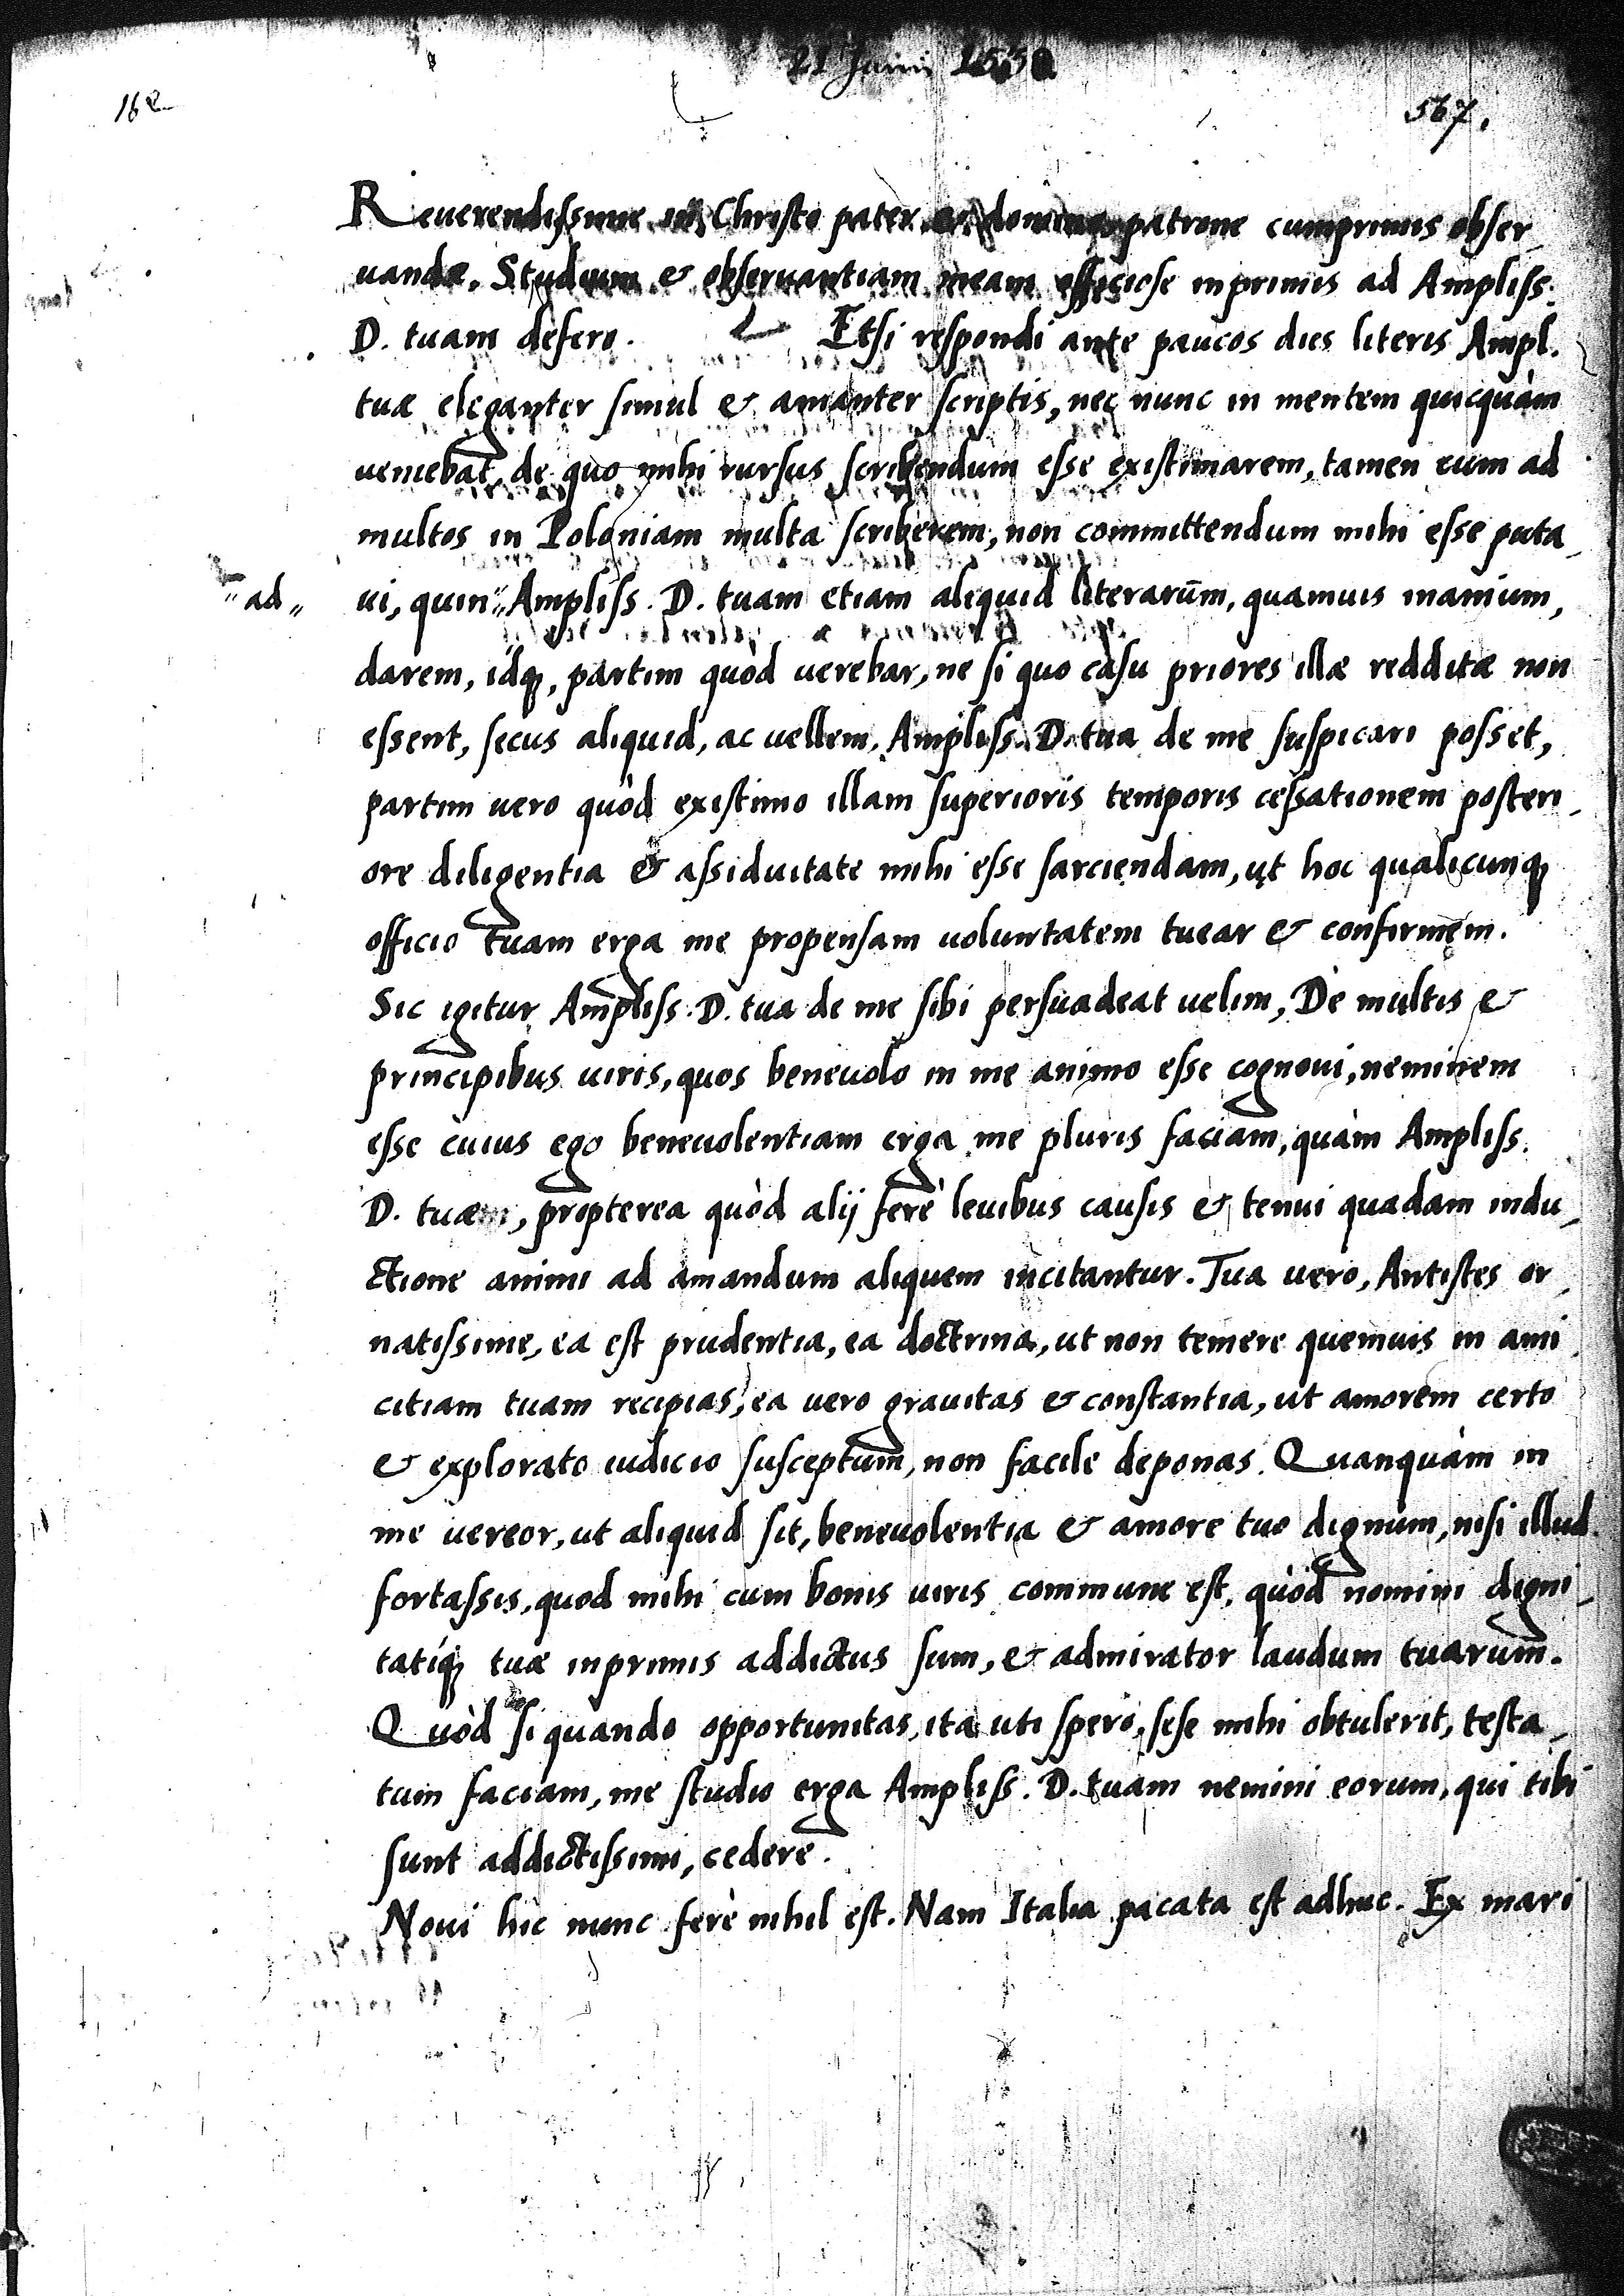 21 Junii 1550
162
567.
Reuerendissime in Christo pater ac domine patrone cumprimis obser¬
uandæ. Studium & obseruantiam meam officiose inprimis ad Ampliss.
D. tuam defero. Etsi respondi ante paucos dies literis Ampl.
tuæ eleganter simul & amanter scriptis, nec nunc in mentem quicquàm
ueniebat, de quo mihi rursus scribendum esse existimarem, tamen cum ad
multos in Poloniam multa scriberem, non committendum mihi esse puta¬
ui, quin "ad" Ampliss. D. tuam etiam aliquid literarum, quamuis inanium,
darem, idq;, partim quòd verebar, ne si quo casu priores illæ redditæ non
essent, secus aliquid, ac vellem, Ampliss. D. tua de me suspicari posset,
partim vero quòd existimo illam superioris temporis cessationem posteri¬
ore diligentia & assiduitate mihi esse sarciendam, ut hoc qualicunq;
officio tuam erga me propensam voluntatem tuear & confirmem.
Sic igitur Ampliss. D. tua de me sibi persuadeat uelim, De multis &
principibus uiris, quos beneuolo in me animo esse cognoui, neminem
esse cuius ego beneuolentiam erga me pluris faciam, quàm Ampliss.
D. tuæ, propterea quòd alij ferè leuibus causis & tenui quadam indu¬
ctione animi ad amandum aliquem incitantur. Tua uero, Antistes or¬
natissime, ea est prudentia, ea doctrina, ut non temere quemuis in ami¬
citiam tuam recipias, ea vero grauitas & constantia, ut amorem certo
& explorato iudicio susceptum, non facile deponas. Quanquàm in
me uereor, ut aliquid sit, beneuolentia & amore tuo dignum, nisi illud
fortassis, quod mihi cum bonis uiris commune est, quòd nomini digni¬
tatíq; tuæ inprimis addictus sum, & admirator laudum tuarum.
Quòd si quando opportunitas, ita uti spero, sese mihi obtulerit, testa¬
tum faciam, me studio erga Ampliss. D. tuam nemini eorum, qui tibi
sunt addictissimi, cedere.
Noui hic nunc ferè nihil est. Nam Italia pacata est adhuc. Ex mari